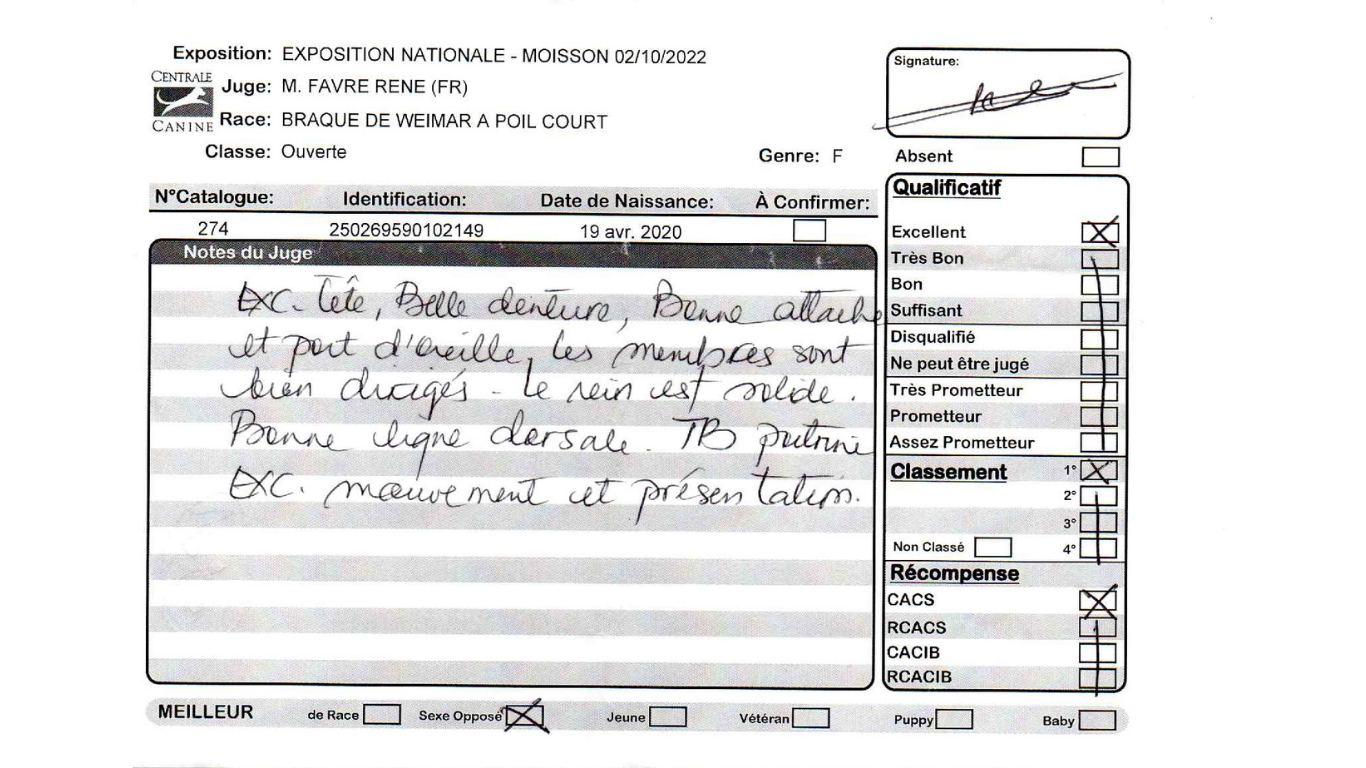 Exposition: EXPOSITION NATIONALE - MOISSON 02/10/2022
CENTRALE CANINE
Juge: M. FAVRE RENE (FR)
Race: BRAQUE DE WEIMAR A POIL COURT
Classe: Ouverte
Genre: F
Signature:
Absent
N°Catalogue: Identification: Date de Naissance: À Confirmer:
274 250269590102149 19 avr. 2020
Notes du Juge
EXC. Tête, Belle denture, Bonne attache
et port d'oreille, les membres sont
bien dirigés - Le rein est solide.
Bonne ligne dorsale. TB poitrine
EXC. mouvement et présentation.
Qualificatif
Excellent
Très Bon
Bon
Suffisant
Disqualifié
Ne peut être jugé
Très Prometteur
Prometteur
Assez Prometteur
Classement 1°
2°
3°
Non Classé 4°
Récompense
CACS
RCACS
CACIB
RCACIB
MEILLEUR de Race Sexe Opposé Jeune Vétéran Puppy Baby